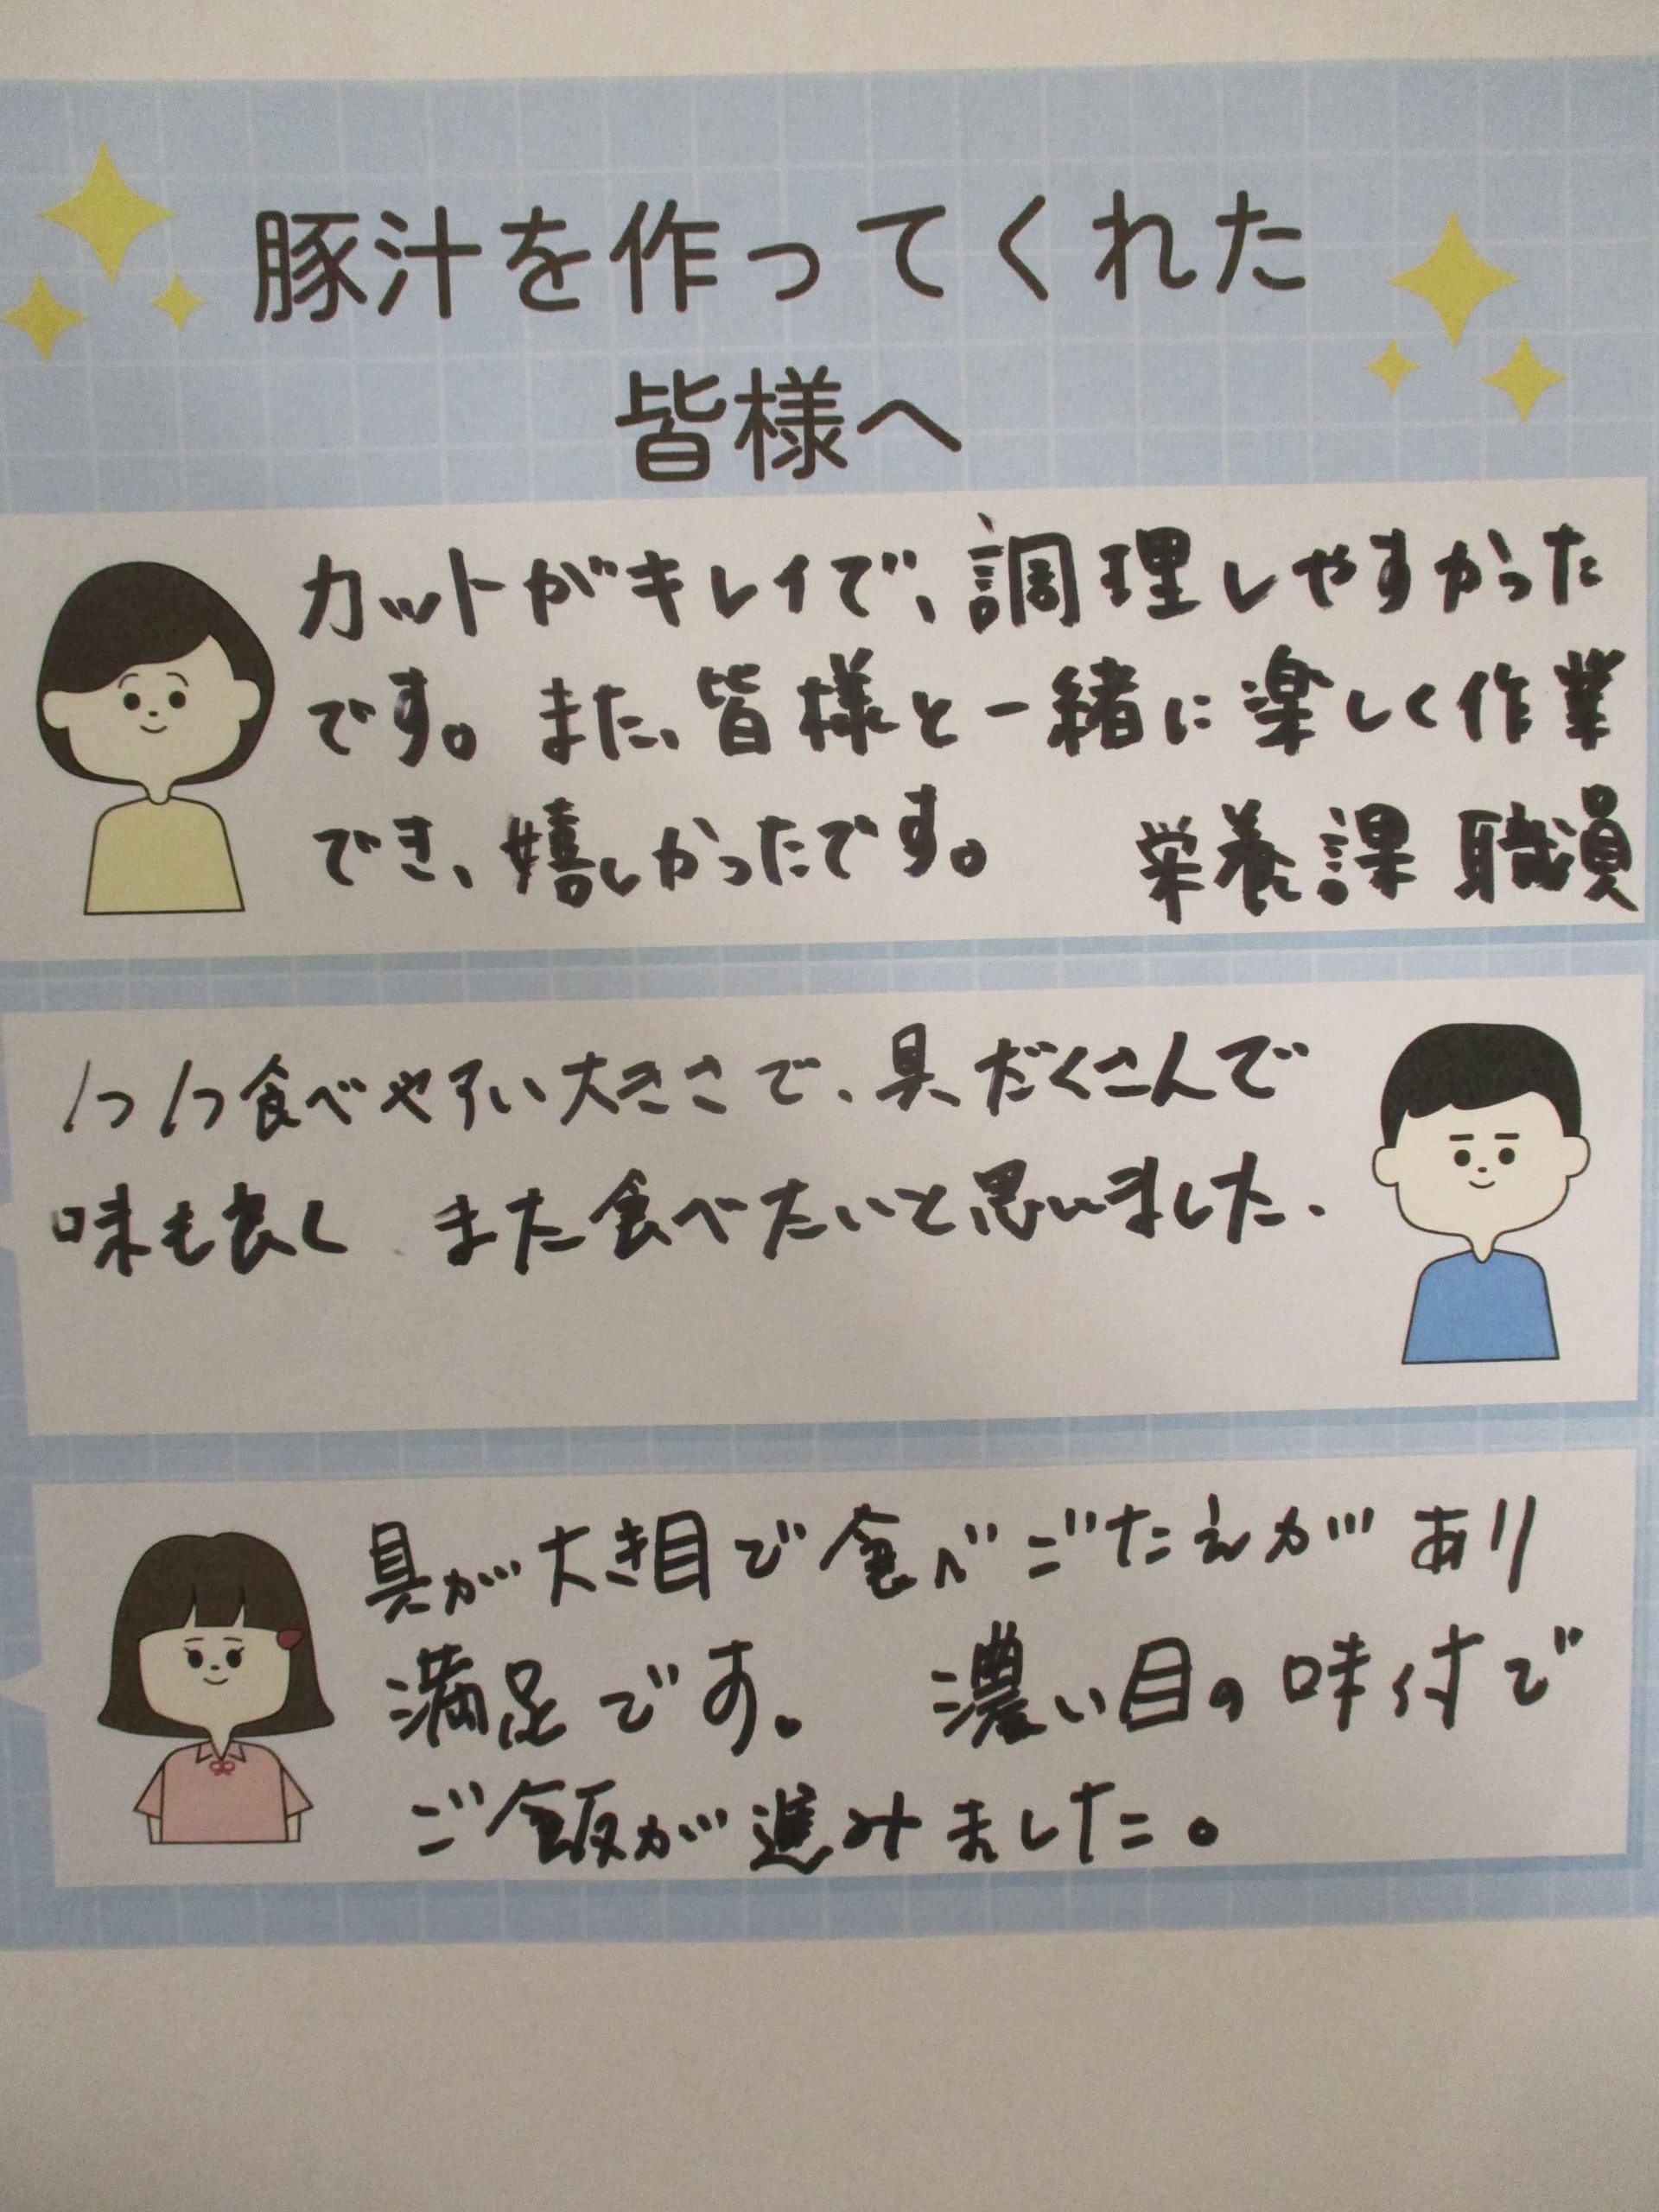 豚汁を作ってくれた
皆様へ
カットがキレイで、調理しやすかった
です。また、皆様と一緒に楽しく作業
でき、嬉しかったです。 栄養課 職員
1つ1つ食べやすい大きさで、具だくさんで
味も良く また食べたいと思いました。
具が大き目で食べごたえがあり
満足です。 濃い目の味付で
ご飯が進みました。